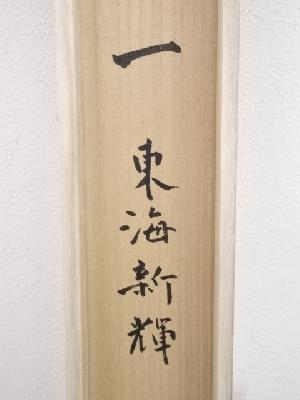 一 東海新輝